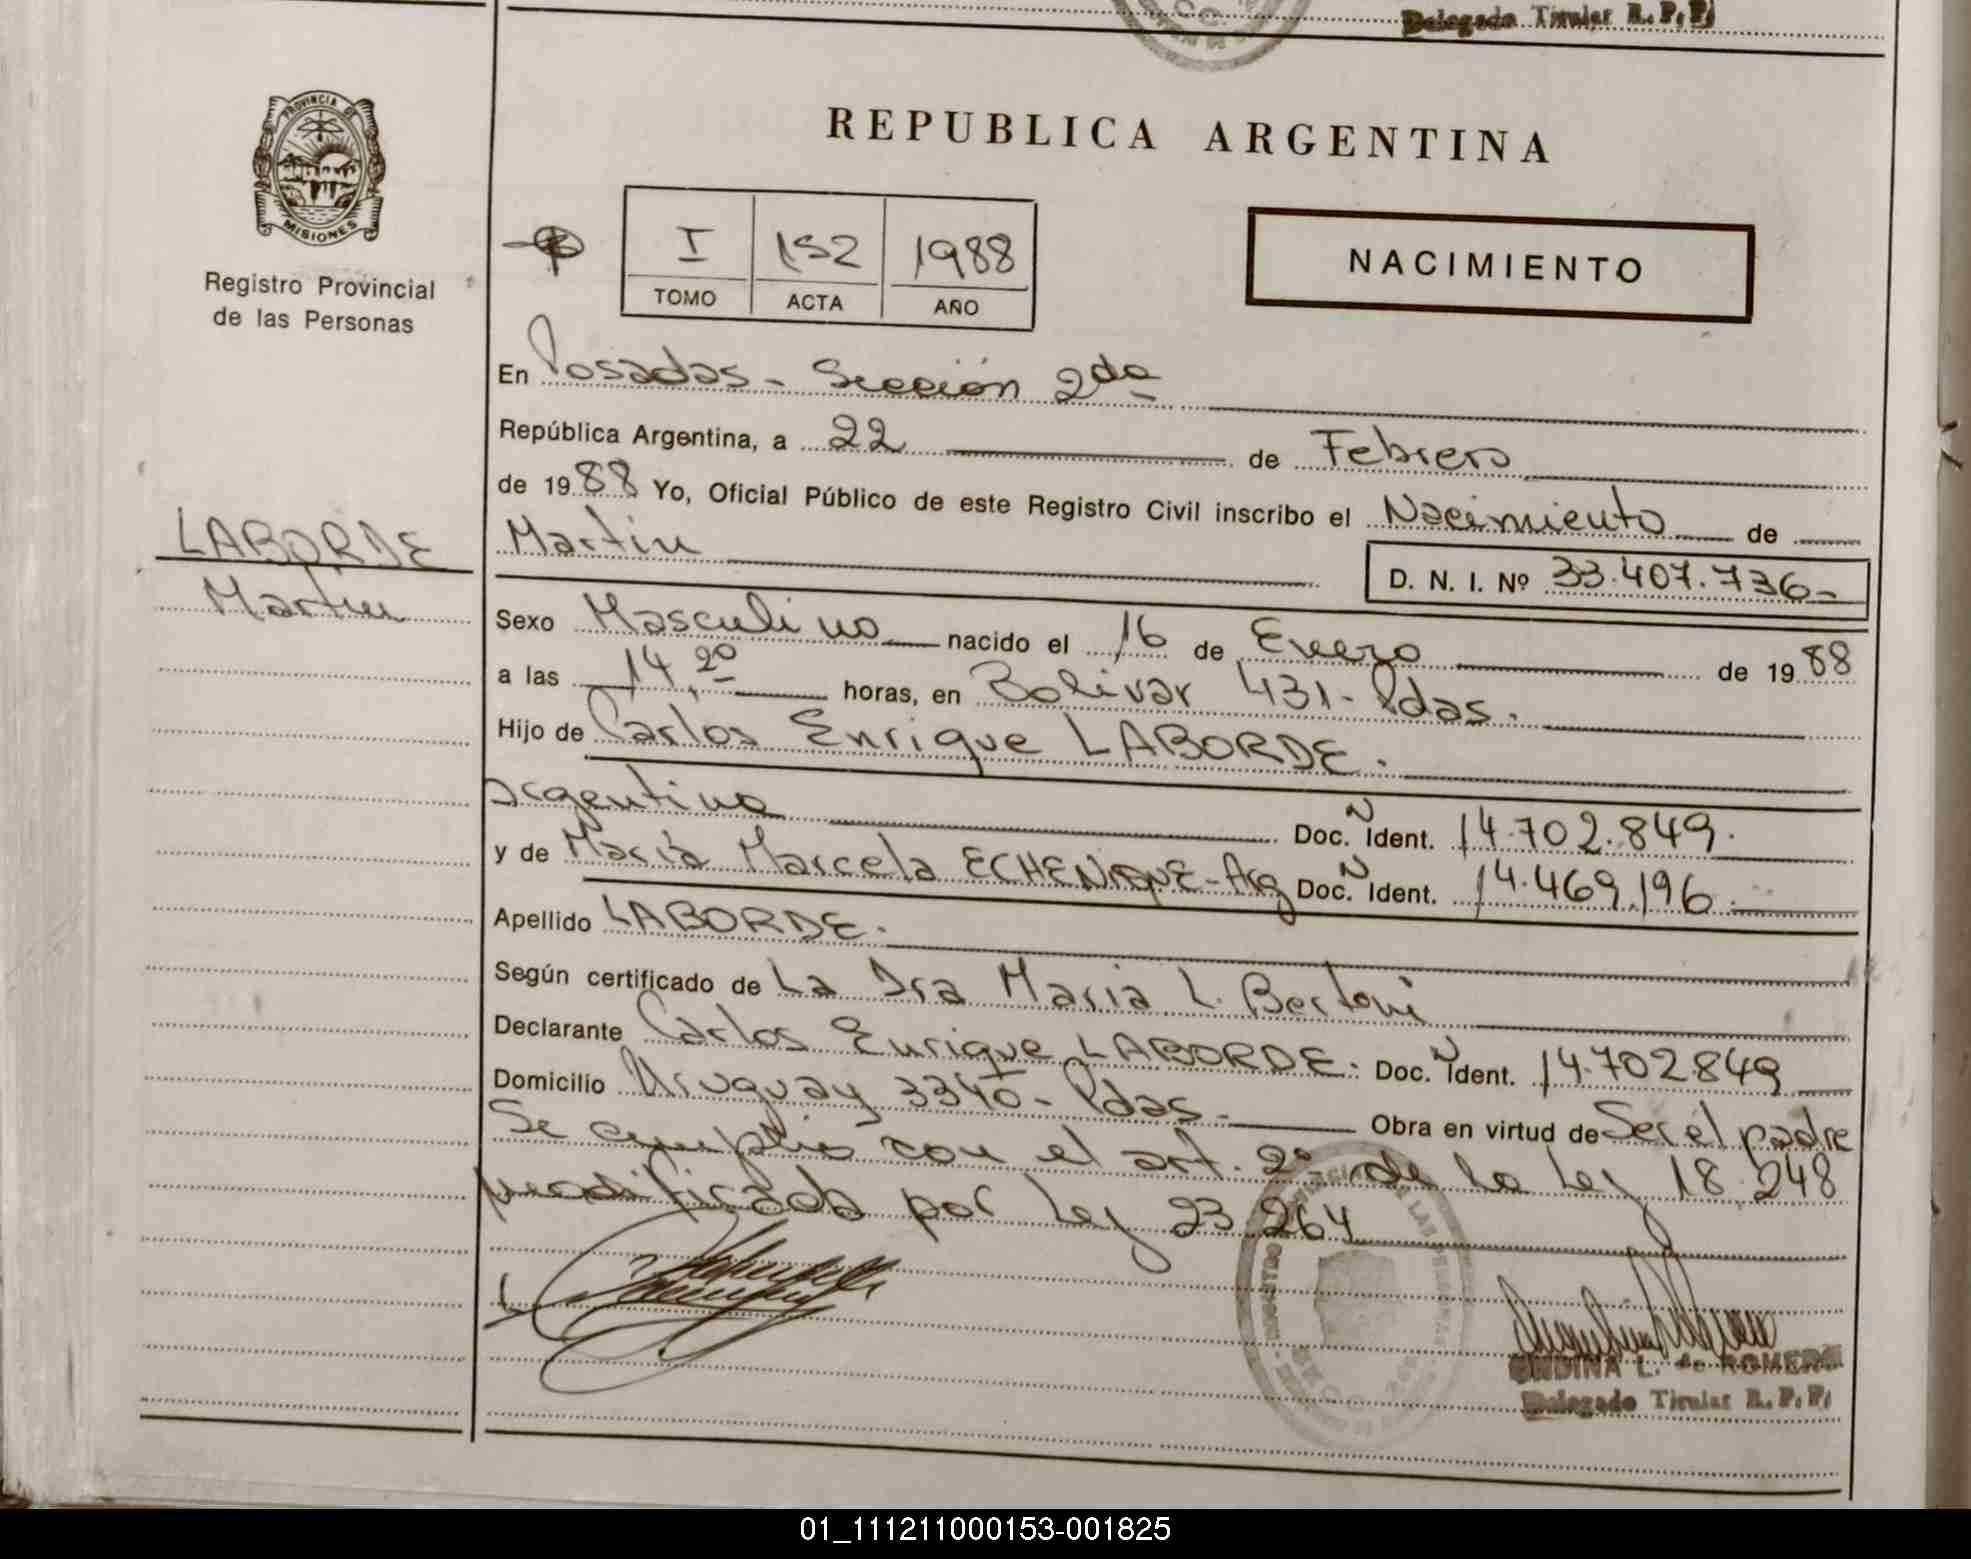 Delegado Titular R. P. P.
PROVINCIA DE
MISIONES
Registro Provincial
de las Personas
REPUBLICA ARGENTINA
I 152 1988
TOMO ACTA AÑO
NACIMIENTO
LABORDE
Martin
En Posadas - Sección 2da
República Argentina, a 22 de Febrero
de 1988 Yo, Oficial Público de este Registro Civil inscribo el Nacimiento de
Martin
D. N. I. Nº 33.407.736-
Sexo Masculino nacido el 16 de Enero de 1988
a las 14,20 horas, en Bolivar 431- Pdas.
Hijo de Carlos Enrique LABORDE.
argentino Doc. Ident. 14.702.849.
y de María Marcela ECHENIQUE-Arg Doc. Ident. 14.469.196
Apellido LABORDE.
Según certificado de La Dra Maria L. Bertoni
Declarante Carlos Enrique LABORDE. Doc. Ident. 14.702849
Domicilio Uruguay 3340- Pdas. Obra en virtud de Ser el padre
Se cumplió con el art. 2º de la Ley 18.248
modificado por Ley 23.264
ONDINA L. de ROMERO
Delegado Titular R. P. P.
01_111211000153-001825